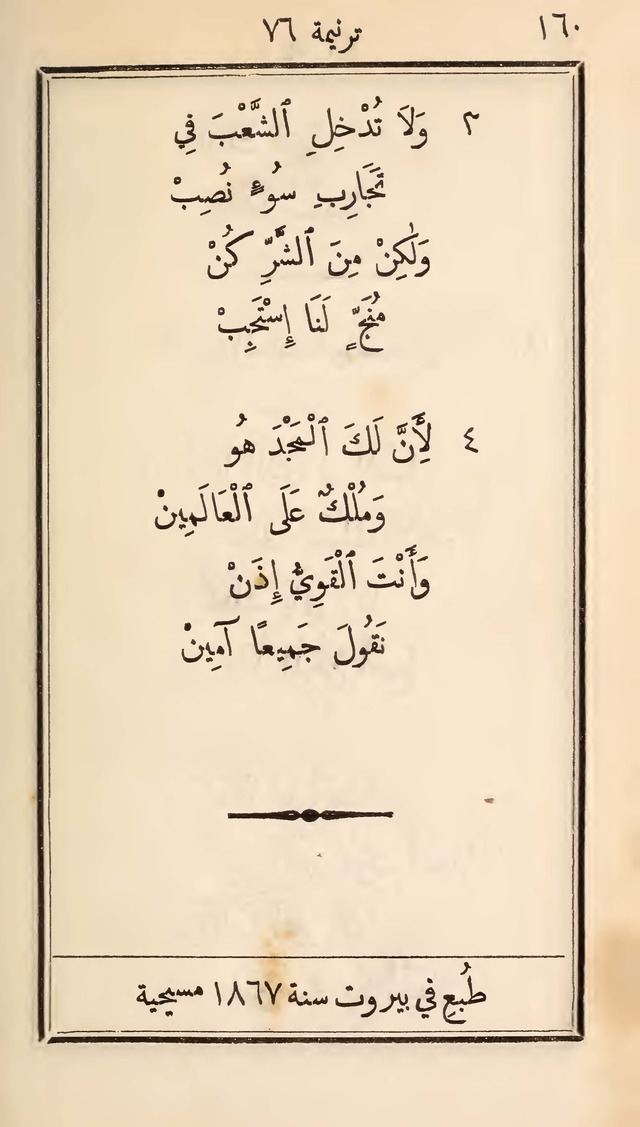 ١٦٠
ترنيمة ٧٦
٣ وَلَا تُدْخِلِ ٱلشَّعْبَ فِي
تَجَارِبِ سُوءٍ نُصِبْ
وَلٰكِنْ مِنَ ٱلشَّرِّ كُنْ
مُنَجٍّ لَنَا إِسْتَجِبْ
٤ لِأَنَّ لَكَ ٱلْمَجْدَ هُو
وَمُلْكٌ عَلَى ٱلْعَالَمِينْ
وَأَنْتَ ٱلْقَوِيُّ إِذَنْ
نَقُولَ جَمِيعًا آمِينْ
طُبِع في بيروت سنة ١٨٦٧ مسيحية